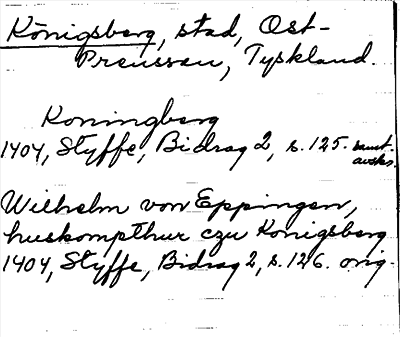 Königsberg, stad, Ost-
Preussen, Tyskland.
Koningberg
1404, Styffe, Bidrag 2, s. 125. samt.
avskr.
Wilhelm von Eppingen,
huskompthur czu Konigsberg
1404, Styffe, Bidrag 2, s. 126. orig.